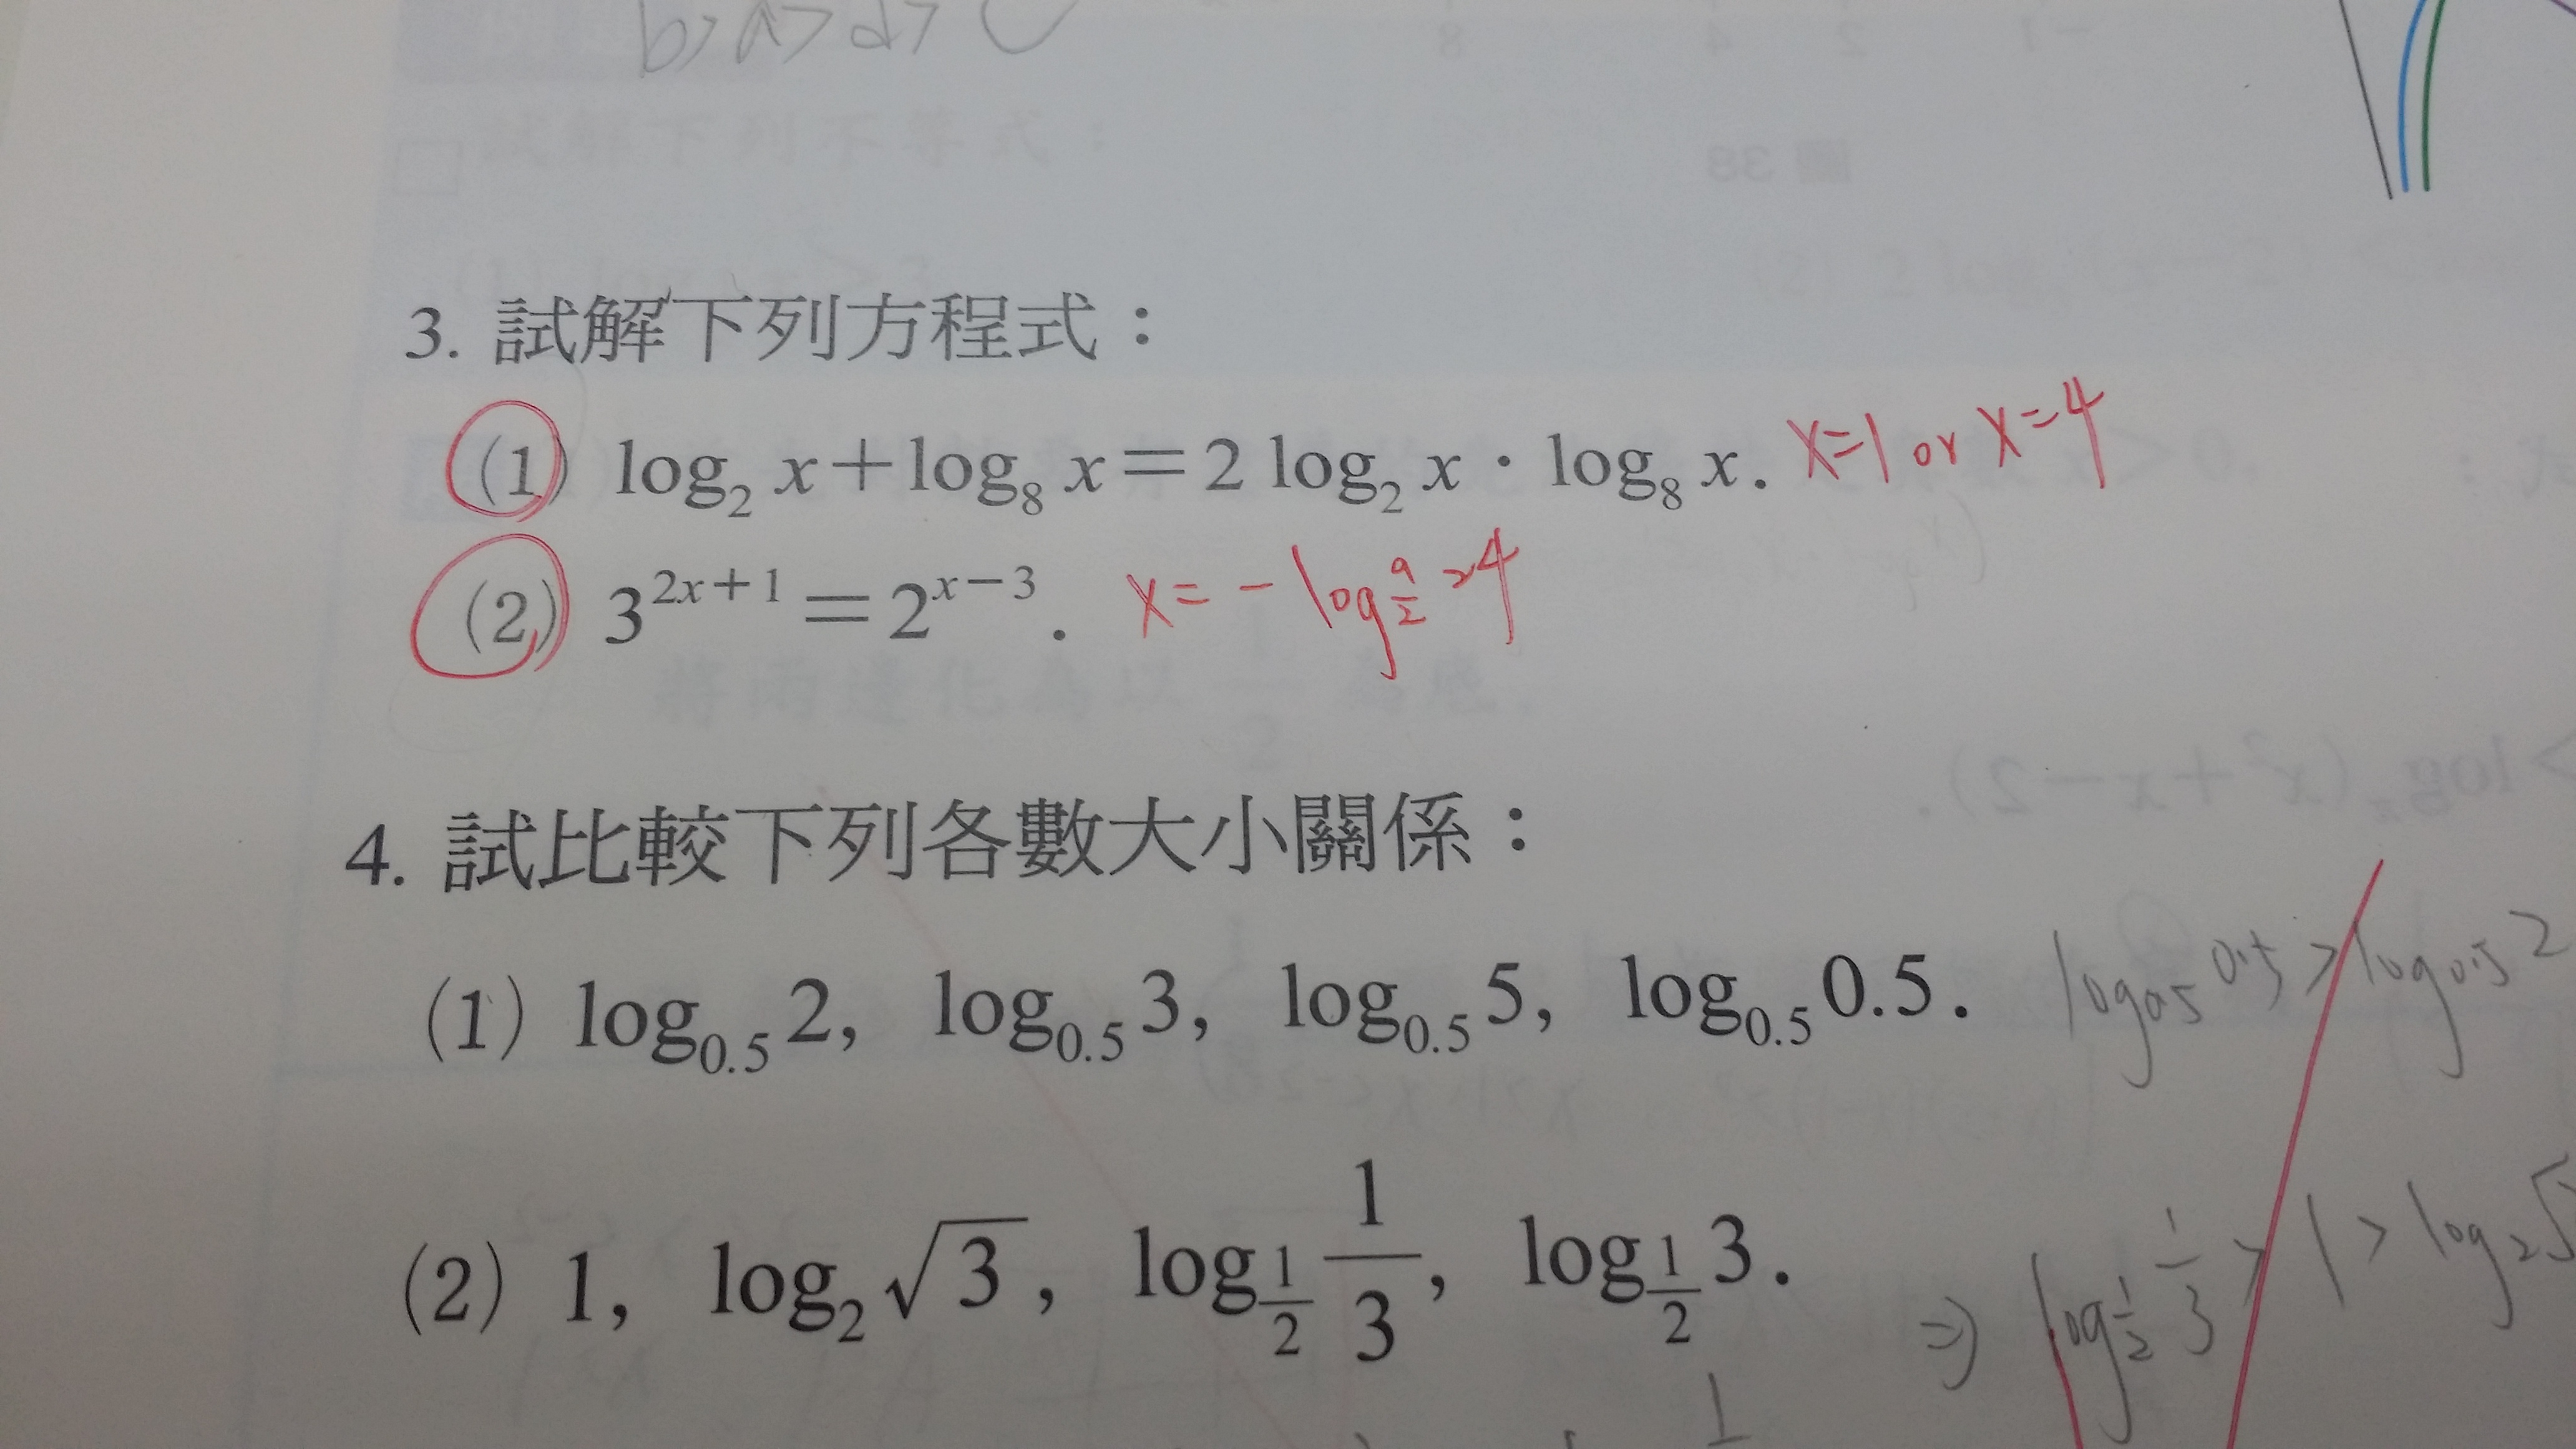 b>a>d>c
3. 試解下列方程式：
(1) log₂ x＋log₈ x＝2 log₂ x · log₈ x. x=1 or x=4
(2) 3^{2x＋1}＝2^{x－3}. x= - log_{9/2} 24
4. 試比較下列各數大小關係：
(1) log₀.₅ 2, log₀.₅ 3, log₀.₅ 5, log₀.₅ 0.5. log₀.₅ 0.5 > log₀.₅ 2
(2) 1, log₂ √3, log_{1/2} 1/3, log_{1/2} 3. ⇒ log_{1/2} 1/3 > 1 > log₂ √